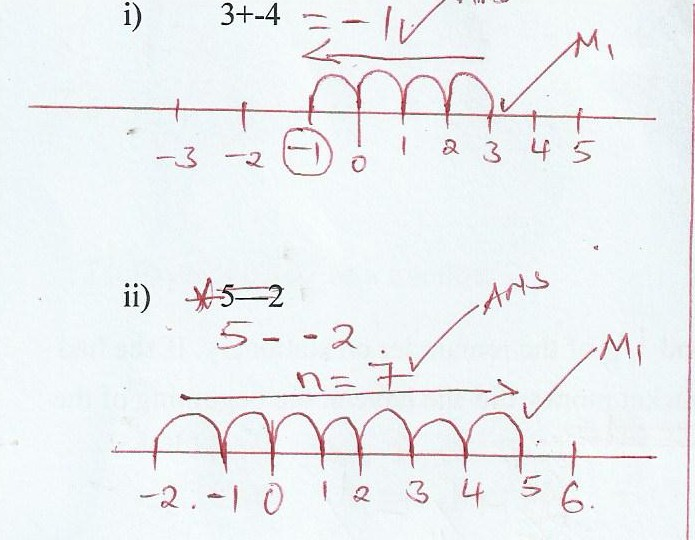 i) 3+-4 = -1
M1
-3 -2 -1 0 1 2 3 4 5
ii) 5—2
5 - - 2
ANS
n = 7
M1
-2. -1 0 1 2 3 4 5 6.